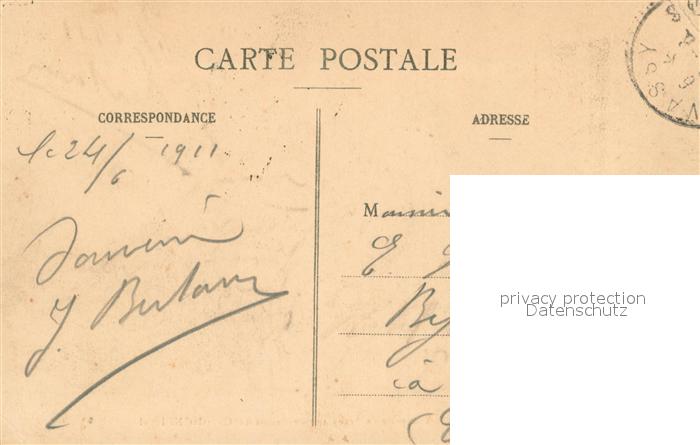 CARTE POSTALE
CORRESPONDANCE
ADRESSE
le 24/6 1911
Souvenir
J.
Monsieur
E.
à
VASSY
privacy protection
Datenschutz